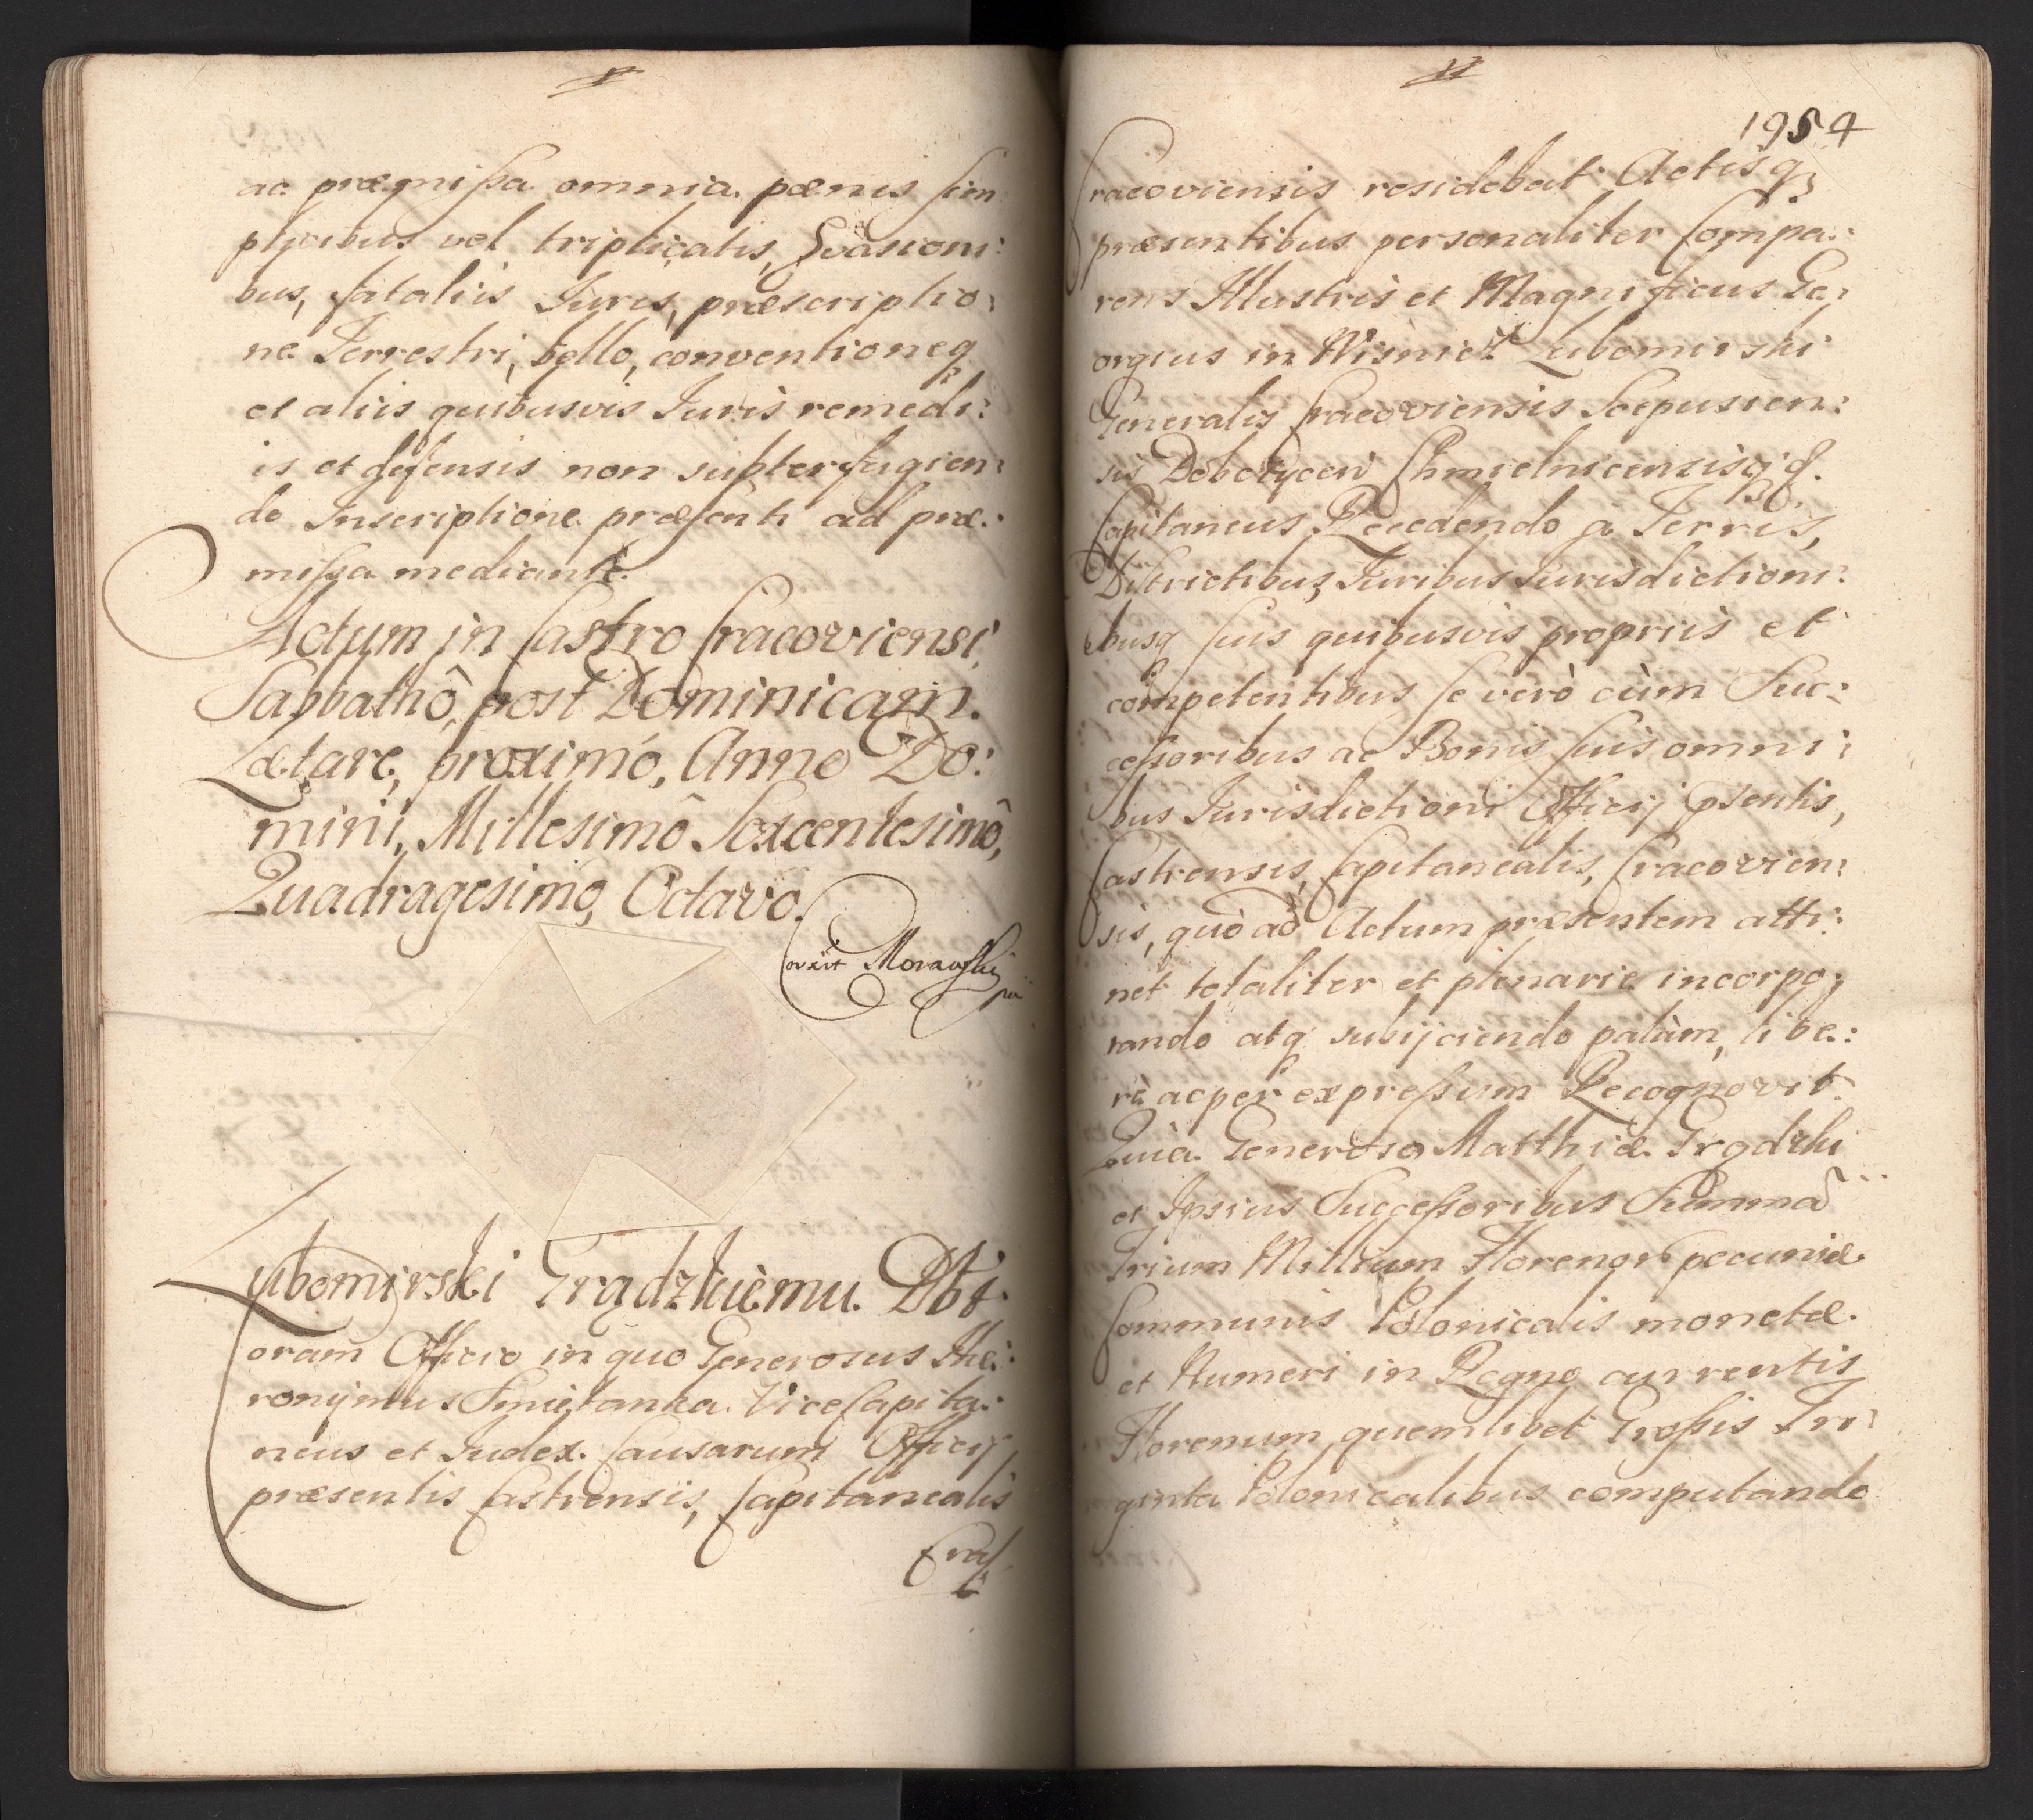 ac præmissa omnia pœnis sim
plicibus vel triplicatis, Evasioni:
bus, fataliis Juris, præscriptio:
ne Terrestri, bello, conventioneq
et aliis quibusvis Juris remedi:
is et defensis non subterfugien:
do Inscriptione præsenti ad præ:
missa mediante.
Actum in Castro Cracoviensi,
Sabbathô, post Dominicam.
Lætare, proximo, Anno Do:
mini, Millesimô Sexcentesimô,
Quadragesimo, Octavo.
Corrit Morawski
Lubomirski Grądzkiemu. Obt.
Coram Officio in quo Generosus Hie:
ronijmus Smietanka ViceCapita:
neus et Judex Causarum Officij
præsentis Castrensis, Capitanealis
Crac
1954
Cracoviensis residebat Actisq;
præsentibus personaliter Compa:
rens Illustris et Magnificus Ge:
orgius in Wiśnicz Lubomirski
Generalis Cracoviensis Scepusien:
sis Dobczycen Chmielnicensisq; &.
Capitaneus Recedendo à Terris,
Districtibus, Juribus Jurisdictioni:
busq suis quibusvis propriis et
competentibus se verò cùm Suc:
cessoribus ac Bonis suis omni:
bus Jurisdictioni Officij psentis,
Castrensis, Capitanealis, Cracovien:
sis, quò ad Actum præsentem atti:
net totaliter et plenarie incorpo:
rando atq subijciendo palàm, libe:
rè ac per expressum Recognovit
Quia Generoso Matthiæ Grądzki
et Ipsius Successoribus Summã
Trium Millium Florenor pecuniæ
Communis Polonicalis monetæ
et Numeri in Regno currentis
Florenum quemlibet Grossis Tri:
ginta Polonicalibus computando